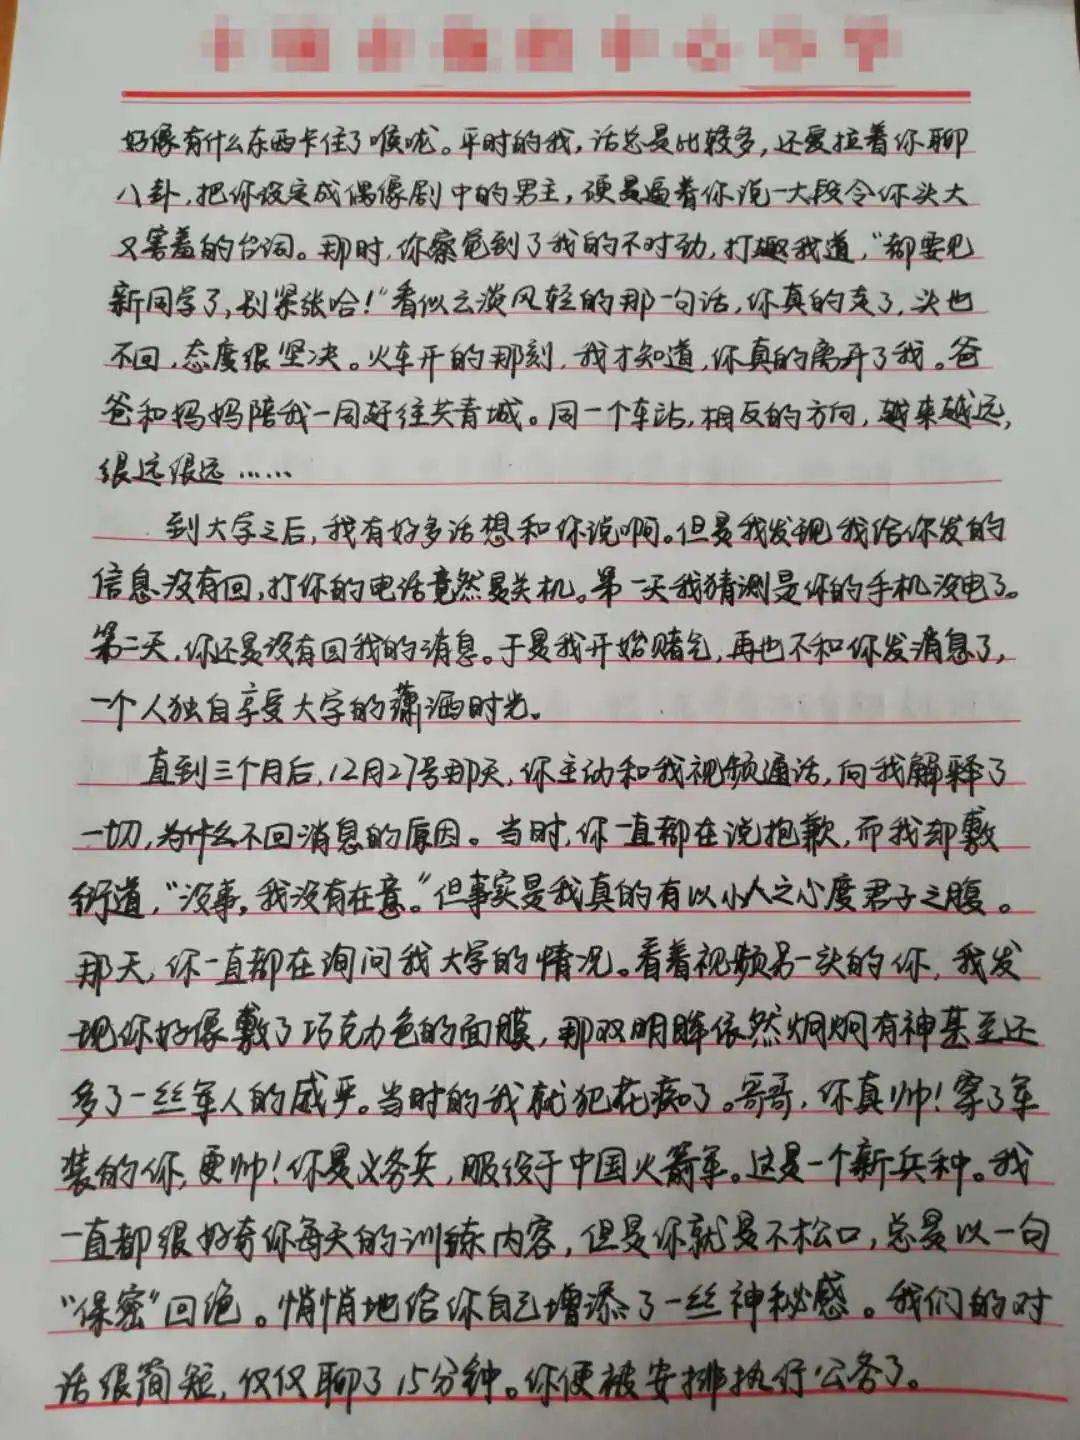 好像有什么东西卡住了喉咙。平时的我,话总是比较多,还爱拉着你聊
八卦,把你设定成偶像剧中的男主,硬是逼着你说一大段令你头大
又害羞的台词。那时,你察觉到了我的不对劲,打趣我道,“都要见
新同学了,别紧张哈!”看似云淡风轻的那一句话,你真的走了,头也
不回,态度很坚决。火车开的那刻,我才知道,你真的离开了我。爸
爸和妈妈陪我一同好往共青城。同一个车站,相反的方向,越来越远,
很远很远……
到大学之后,我有好多话想和你说啊。但是我发现我给你发的
信息没有回,打你的电话竟然是关机。第一天我猜测是你的手机没电了。
第二天,你还是没有回我的消息。于是我开始赌气,再也不和你发消息了,
一个人独自享受大学的潇洒时光。
直到三个月后,12月27号那天,你主动和我视频通话,向我解释了
一切,为什么不回消息的原因。当时,你一直都在说抱歉,而我却敷
衍道,“没事,我没有在意。”但事实是我真的有以小人之心度君子之腹。
那天,你一直都在询问我大学的情况。看着视频另一头的你,我发
现你好像敷了巧克力色的面膜,那双明眸依然炯炯有神甚至还
多了一丝军人的威严。当时的我就犯花痴了。哥哥,你真帅!穿了军
装的你,更帅!你是义务兵,服役于中国火箭军。这是一个新兵种。我
一直都很好奇你每天的训练内容,但是你就是不松口,总是以一句
“保密”回绝。悄悄地给你自己增添了一丝神秘感。我们的对
话很简短,仅仅聊了15分钟。你便被安排执行公务了。